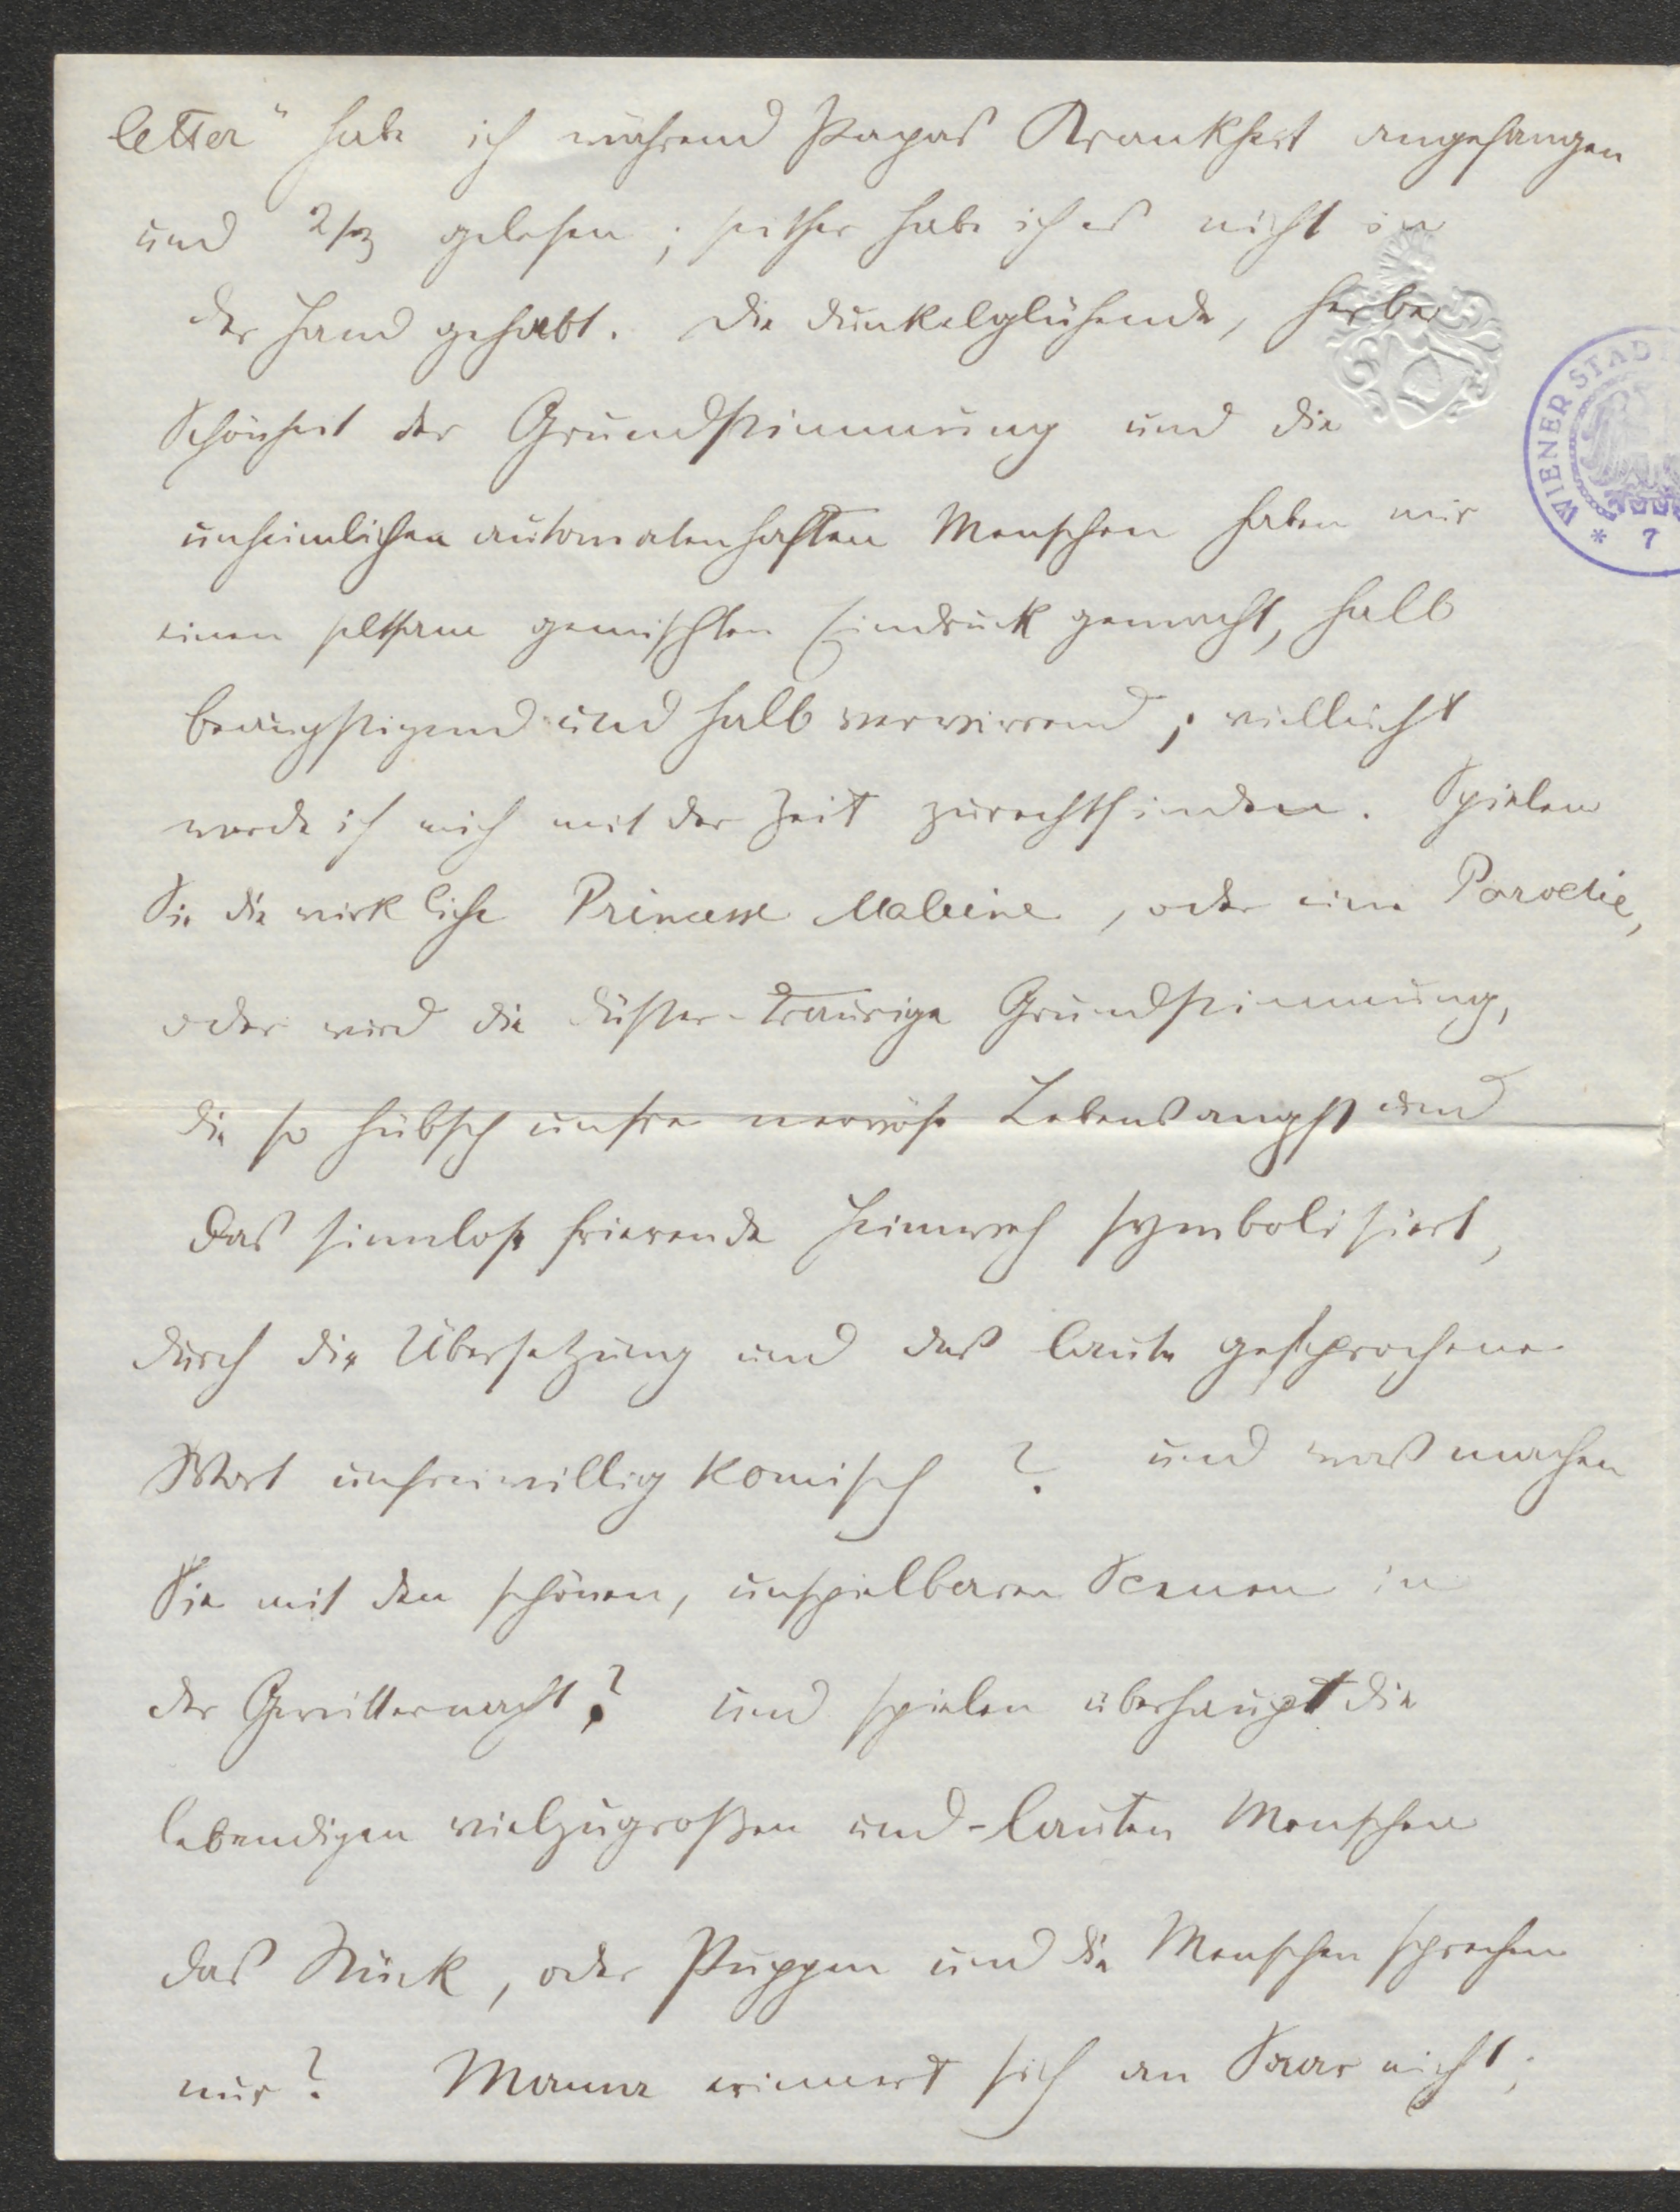 letter“ habe ich während Papas Krankheit angefangen
und 2/3 gelesen; seither habe ich es nicht in
der Hand gehabt. Die dunkelglühende, herbe
Schönheit der Grundstimmung und die
unheimlichen automatenhaften Menschen haben mir
einen seltsam gemischten Eindruck gemacht, halb
beängstigend und halb verwirrend; vielleicht
werde ich mich mit der Zeit zurechtfinden. Spielen
Sie die wirkliche Princesse Maleine, oder eine Parodie,
oder wird die düster-traurige Grundstimmung,
die so hübsch unsre nervöse Lebensangst und
das sinnlose frierende Heimweh symbolisiert,
durch die Übersetzung und das laute gesprochene
Wort unfreiwillig komisch? und was machen
Sie mit den schönen, unspielbaren Scenen in
der Gewitternacht? und spielen überhaupt die
lebendigen vielzugroßen und -lauten Menschen
das Stück, oder Puppen und die Menschen sprechen
nur? Mama erinnert sich an Saar nicht;
WIENER STAD
* 7